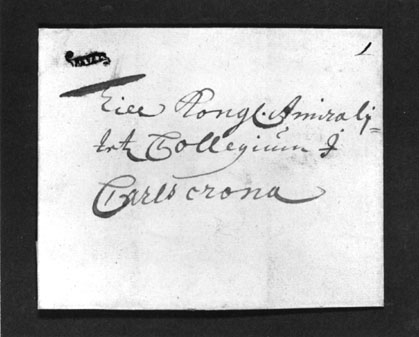 1
Till Kongl. Amirali-
tetz Collegium i
Carlscrona